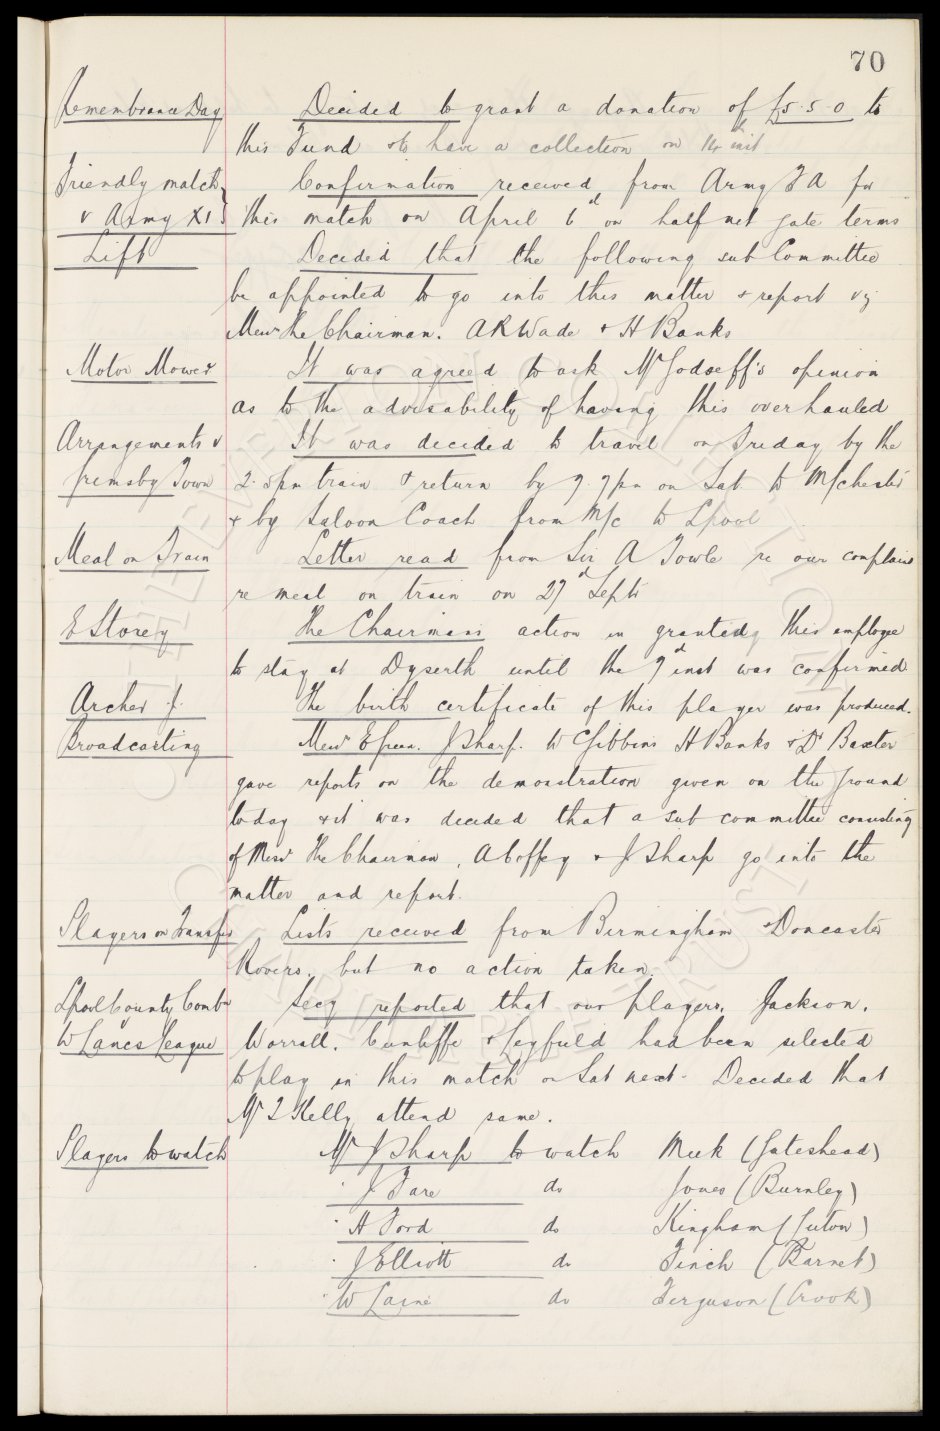 70
Remembrance Day Decided to grant a donation of £5.5.0 to
this Fund & to have a collection on inst
Friendly match Confirmation received from Army F A for
v Army XI this match on April 6 on half net gate terms
Lift Decided that the following sub Committee
be appointed to go into this matter & report viz
Messrs the Chairman. A R Wade & H Banks
Motor Mower It was agreed to ask Mr Godseff's opinion
as to the advisability of having this overhauled
Arrangements v It was decided to travel on Friday by the
Grimsby Town 2.5pm train & return by 7.7pm on Sat to M/chester
& by Saloon Coach from M/c to Lpool
Meal on Train Letter read from Sir A Towle re our complaint
re meal on train on 27 Septr
E Storey The Chairman's action in granted this employee
to stay at Dyserth until the 9 inst was confirmed
Archer J. The birth certificate of this player was produced.
Broadcasting Messrs E Green. J Sharp. W C Gibbins H Banks & Dr Baxter
gave reports on the demonstration given on the ground
today & it was decided that a sub committee consisting
of Messrs the Chairman, A Coffey & J Sharp go into the
matter and report.
Players on Transfer Lists received from Birmingham & Doncaster
Rovers. but no action taken.
Lpool County Combn Secy reported that our players, Jackson,
v
W Lancs League Worrall. Cunliffe & Leyfield had been selected
to play in this match on Sat next. Decided that
Mr T Kelly attend same.
Players to watch Mr J Sharp to watch Meek (Gateshead)
" J Fare do Jones (Burnley)
" H Ford do Kingham (Luton)
" J Elliott do Finch (Barnet)
" W Laine do Ferguson (Crook)